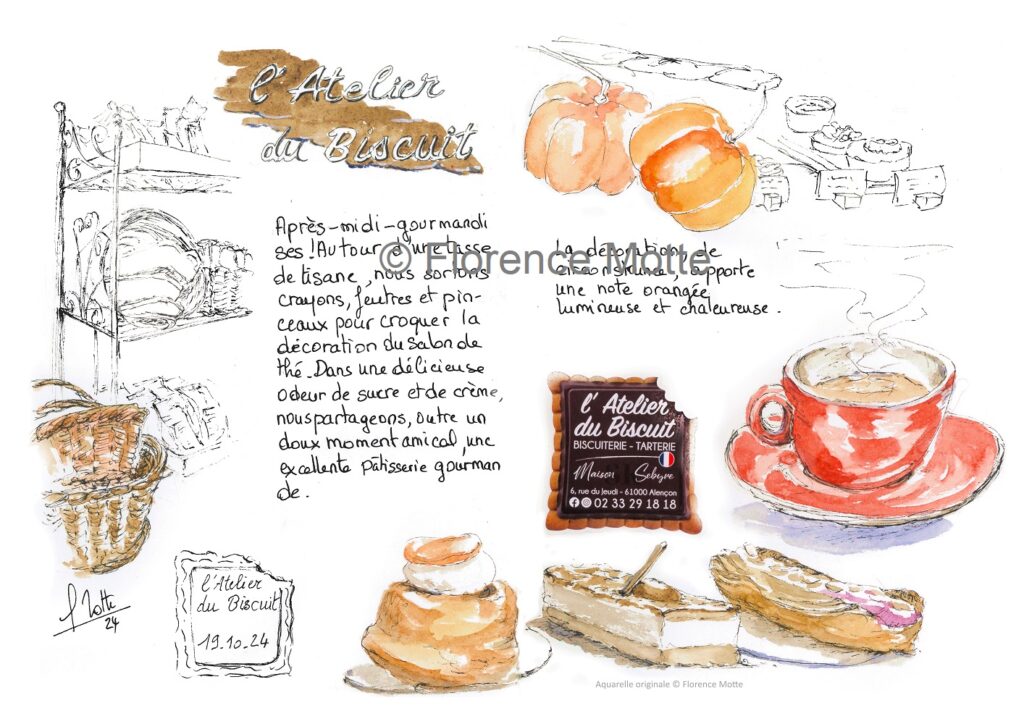 l'Atelier
du Biscuit
Après-midi-gourmandi
ses ! Autour d'une tasse
de tisane, nous sortons
crayons, feutres et pin-
ceaux pour croquer la
décoration du salon de
thé. Dans une délicieuse
odeur de sucre et de crème,
nous partageons, outre un
doux moment amical, une
excellente pâtisserie gourman
de.
© Florence Motte
La décoration, de
circonstance, apporte
une note orangée
lumineuse et chaleureuse.
l'Atelier
du Biscuit
BISCUITERIE - TARTERIE
Maison Sebyre
6, rue du Jeudi - 61000 Alençon
02 33 29 18 18
l'Atelier
du Biscuit
19.10.24
24
Aquarelle originale © Florence Motte